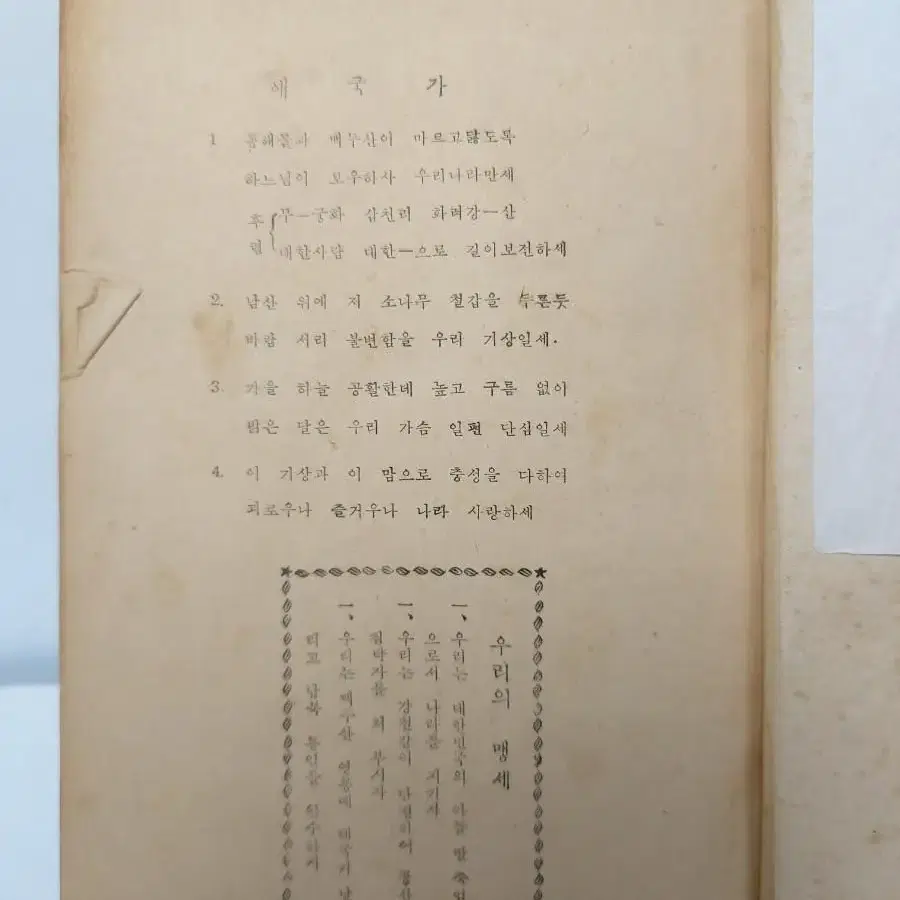 애 국 가
1. 동해물과 백두산이 마르고닳도록
하느님이 보우하사 우리나라만세
후렴 무ー궁화 삼천리 화려강ー산
대한사람 대한ー으로 길이보전하세
2. 남산 위에 저 소나무 철갑을 두른듯
바람 서리 불변함을 우리 기상일세.
3. 가을 하늘 공활한데 높고 구름 없이
밝은 달은 우리 가슴 일편 단심일세
4. 이 기상과 이 맘으로 충성을 다하여
괴로우나 즐거우나 나라 사랑하세
우리의 맹세
一、우리는 대한민국의 아들 딸 죽엄
으로서 나라를 지키자
一、우리는 강철같이 단결하여 공산
침략자를 쳐 부시자
一、우리는 백두산 영봉에 태극기 날
리고 남북 통일을